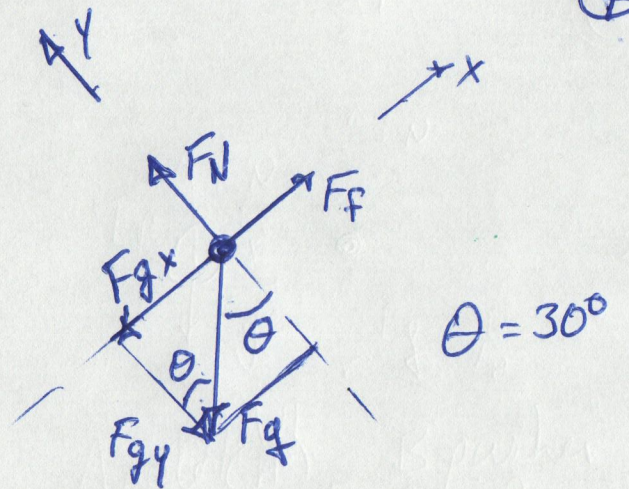 Y
X
FN
Ff
Fgx
θ
θ
θ = 30°
Fgy
Fg